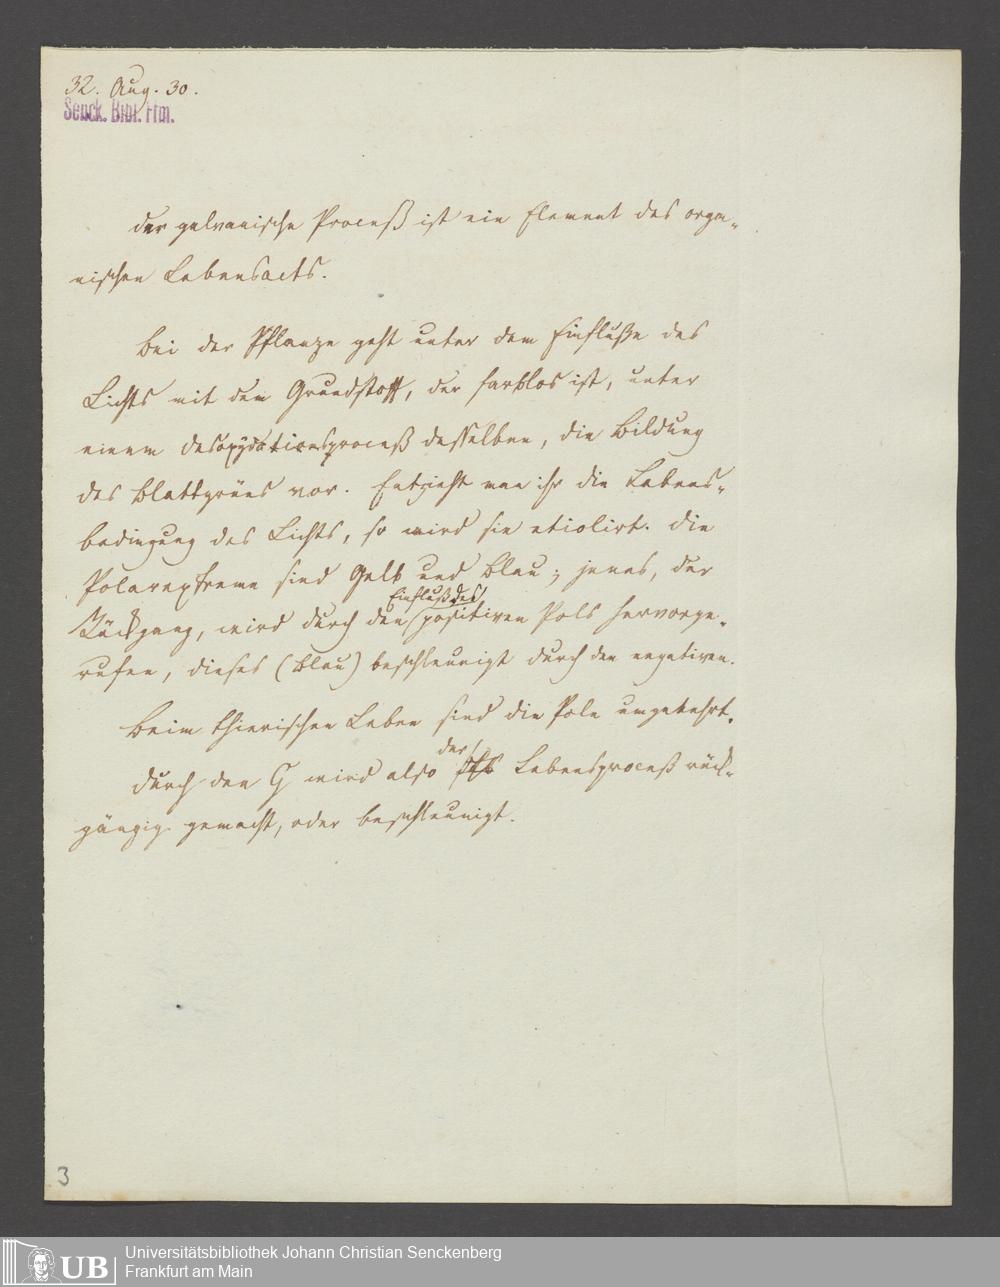 32. Aug. 30.
Senck. Bibl. Ffm.
Der galvanische Proceß ist ein Element des orga-
nischen Lebensacts.
Bei der Pflanze geht unter dem Einfluße des
Lichts mit dem Grundstoff, der farblos ist, unter
einem Desoxydationsproceß desselben, die Bildung
des Blattgrüns vor. Entzieht man ihr die Lebens-
bedingung des Lichts, so wird sie etiolirt. Die
Polarextreme sind Gelb und Blau; jenes, der
Einfluß des
Rückgang, wird durch den positiven Pols hervorge-
rufen, dieses (Blau) beschleunigt durch den negativen.
Beim thierischen Leben sind die Pole umgekehrt.
der
Durch den G wird also Lebensproceß rück-
gängig gemacht, oder beschleunigt.
3
UB
Universitätsbibliothek Johann Christian Senckenberg
Frankfurt am Main